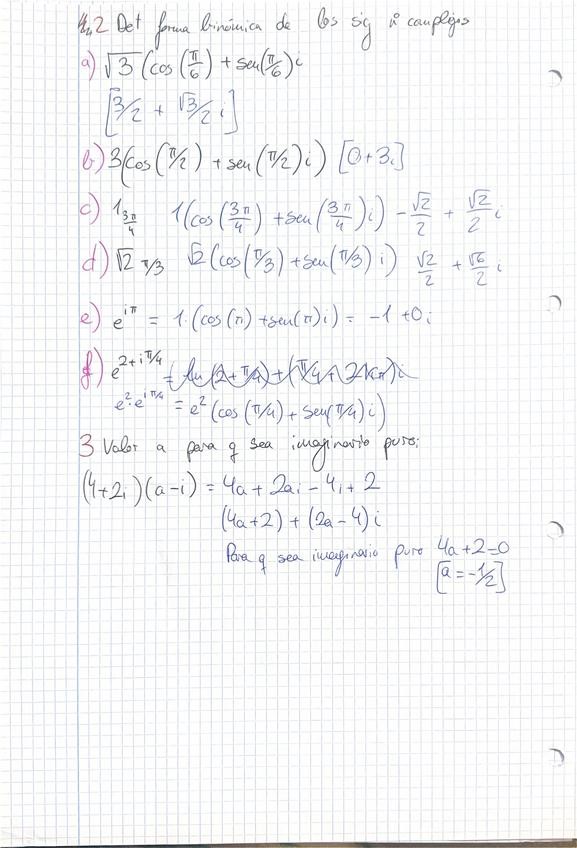 4.2 Det forma binómica de los sig nº complejos
a) √3 (cos(π/6) + sen(π/6) i
[3/2 + √3/2 i]
b) 3(cos(π/2) + sen(π/2) i) [0+3i]
c) 1 3π/4 1(cos(3π/4) + sen(3π/4) i) -√2/2 + √2/2 i
d) √2 π/3 √2(cos(π/3) + sen(π/3) i) √2/2 + √6/2 i
e) e^iπ = 1·(cos(π) + sen(π) i) = -1 + 0i
f) e^2+iπ/4 = ln(2+π/4) + (π/4 + 2kπ) i
e^2·e^iπ/4 = e^2 (cos(π/4) + sen(π/4) i)
3 Valor a para q sea imaginario puro:
(4+2i)(a-i) = 4a + 2ai - 4i + 2
(4a+2) + (2a-4) i
Para q sea imaginario puro 4a+2=0
[a = -1/2]